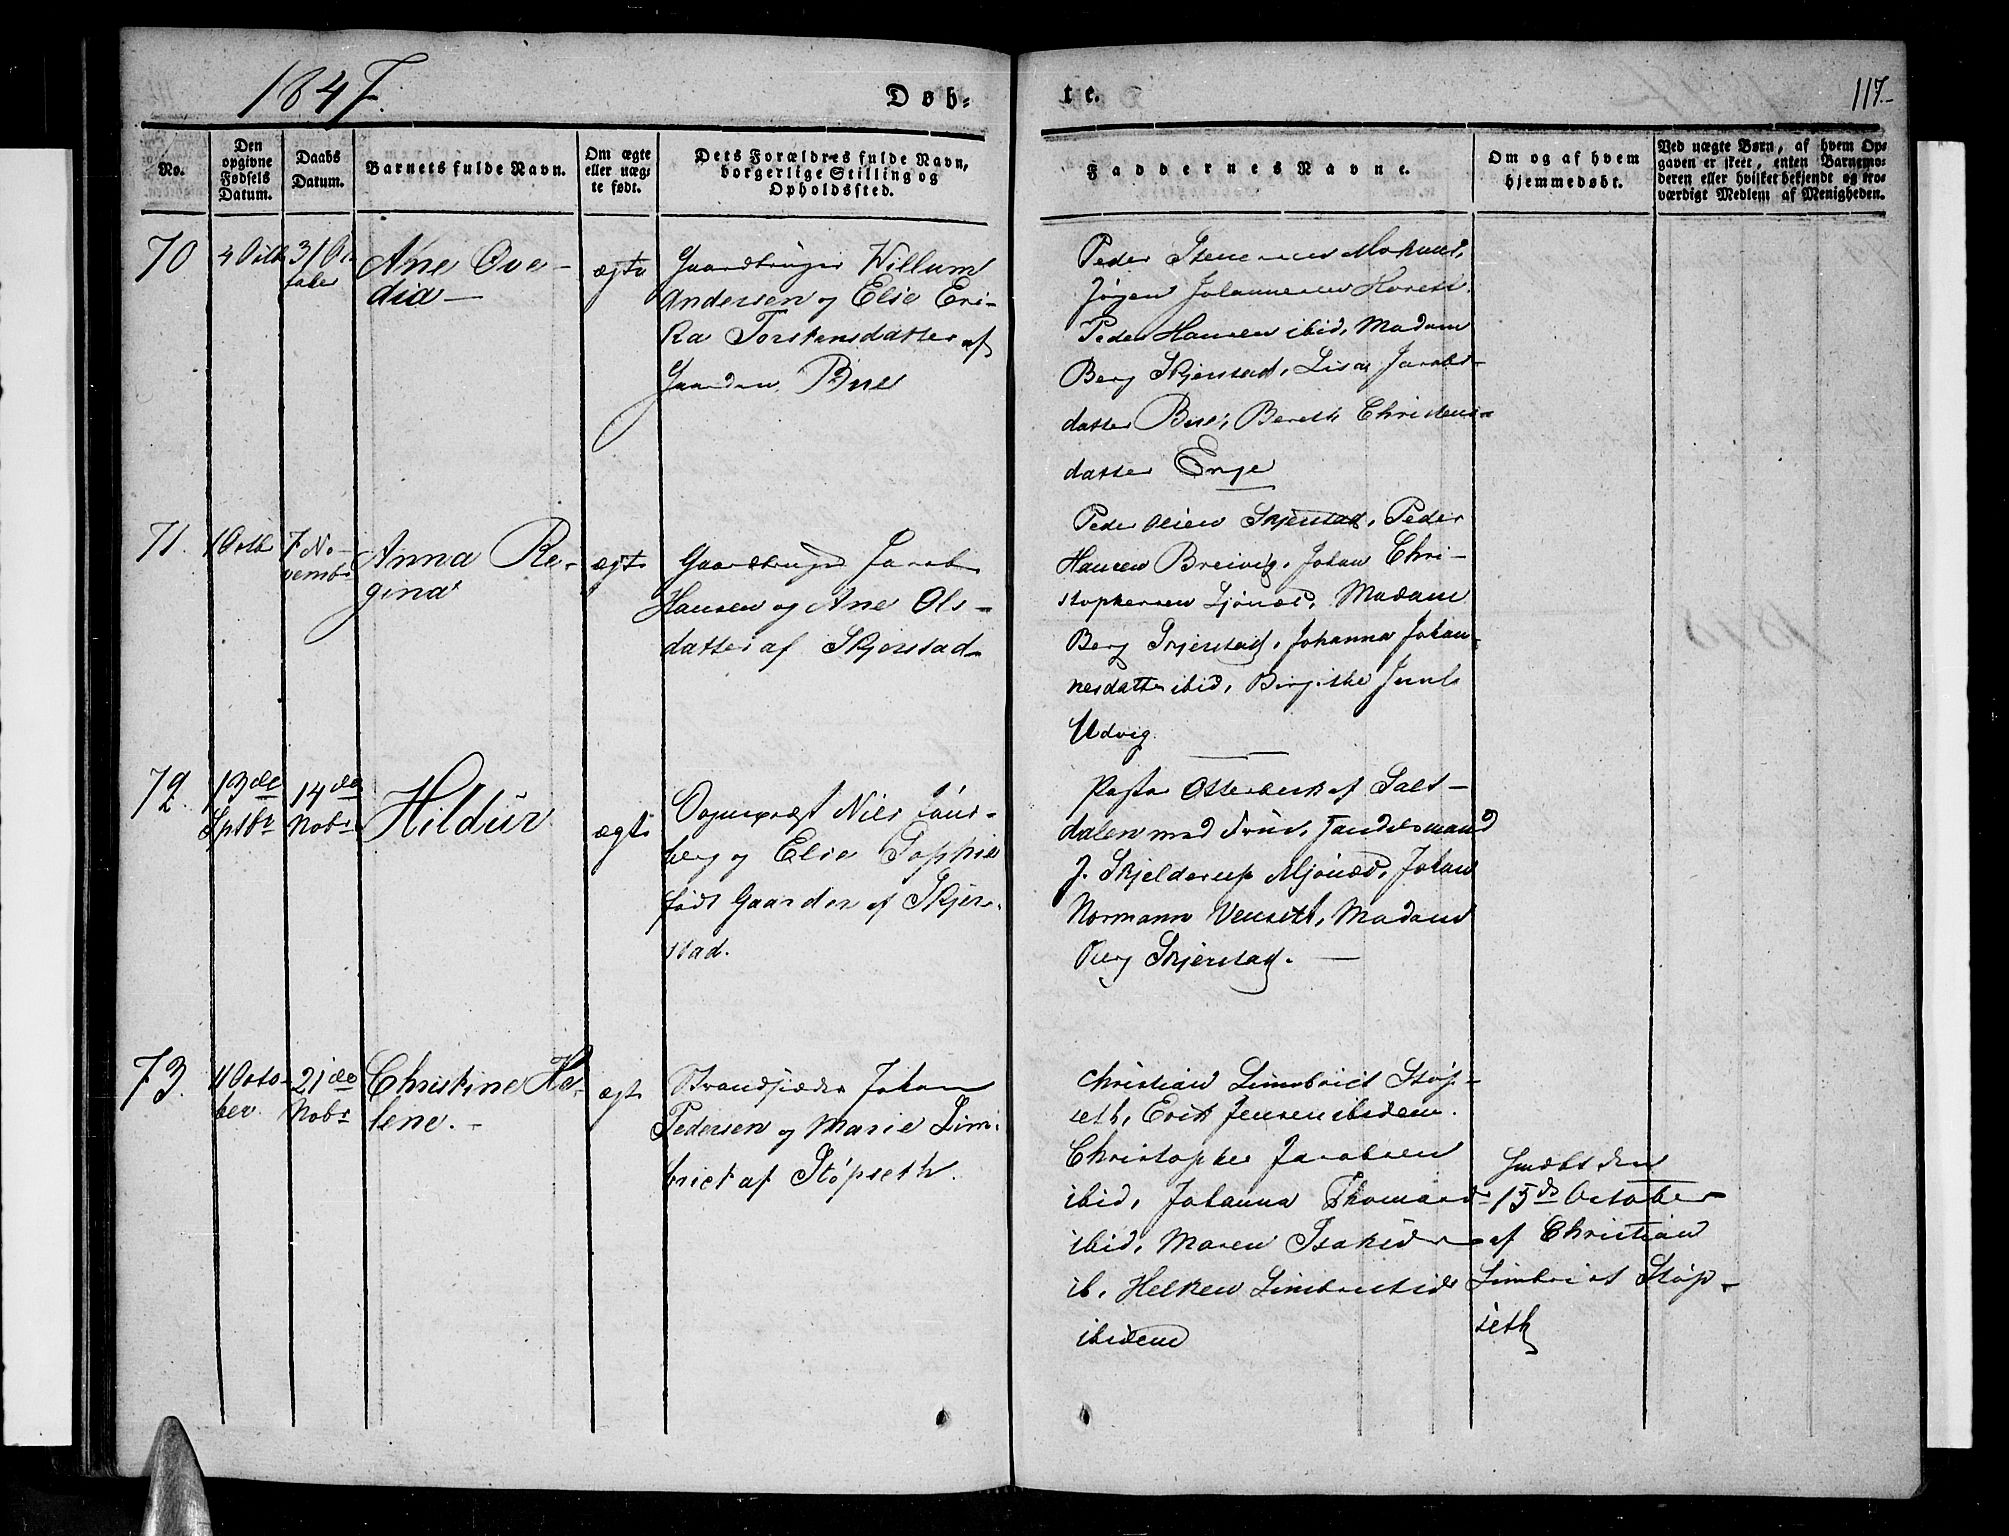 1847.
Døb-
te.
117.
No.
Den
opgivne
Fødsels
Datum.
Daabs
Datum.
Barnets fulde Navn.
Om ægte
eller uæg-
te født.
Dets Forældres fulde Navn,
borgerlige Stilling og
Opholdssted.
Faddernes Navne.
Om og af hvem
hjemmedøbt.
Ved uægte Børn, af hvem Op-
gaven er skeet, enten Barnemo-
deren eller hvilket bekjendt og tro-
værdigt Medlem af Menigheden.
70
4 Octb
31 Oc
tober
Ane Ove-
dia
ægte
Gaardbruger Willum
Andersen og Elie Eri-
ka Torstensdatter af
Gaarden Bue
Peder
Jørgen Johannesen
Peder Hansen ibid, Madam
Berg Skjerstad, Lisa Jacobs-
datter Bue, Bereth Christens-
datter Enge
71.
1 Octb
7 No-
vemb
Anna Re-
gina
ægte
Gaardbruger Jacob
Hansen og Ane Ols-
datter af Skjerstad
Peder Olsen Skjerstad, Peder
Hansen Breivig, Johan Chri-
stophersen Ljønæs, Madam
Berg Skjerstad, Johanna Johan-
nesdatter ibid, Birgithe Juul
Udvig.
72.
13de
Sptbr
14de
Nobr
Hildur
ægte
Sognepræst Niels
berg og Elie Sophie
født Gaarder af Skjer-
stad.
Pastor Otterbech af Salt-
dalen med Frue, Handelsmand
J. Skjelderup Mjønæs, Johan
Normann Venseth, Madam
Berg Skjerstad.
73.
11 Octo-
ber
21de
Nobr
Christine He-
lene.
ægte
Strandsidder Johan
Pedersen og Marie Lim-
brict af Støpseth.
Christian Limbrict Støp-
seth, Erik Jensen ibidem.
Christopher Jacobsen
ibid, Johanna Thomasd
ibid, Maren Isaksd
ib, Helken Limbrictsd
ibidem
Hmdbt den
15de October
af Christian
Limbrict Støp-
seth